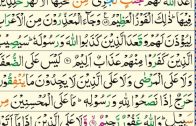 فِيهَا ذَٰلِكَ الْفَوْزُ الْعَظِيمُ وَجَاءَ الْمُعَذِّرُونَ مِنَ الْأَعْرَابِ
لِيُؤْذَنَ لَهُمْ وَقَعَدَ الَّذِينَ كَذَبُوا اللَّهَ وَرَسُولَهُ سَيُصِيبُ
الَّذِينَ كَفَرُوا مِنْهُمْ عَذَابٌ أَلِيمٌ لَيْسَ عَلَى الضُّعَفَاءِ
وَلَا عَلَى الْمَرْضَىٰ وَلَا عَلَى الَّذِينَ لَا يَجِدُونَ مَا يُنفِقُونَ
حَرَجٌ إِذَا نَصَحُوا لِلَّهِ وَرَسُولِهِ مَا عَلَى الْمُحْسِنِينَ مِن